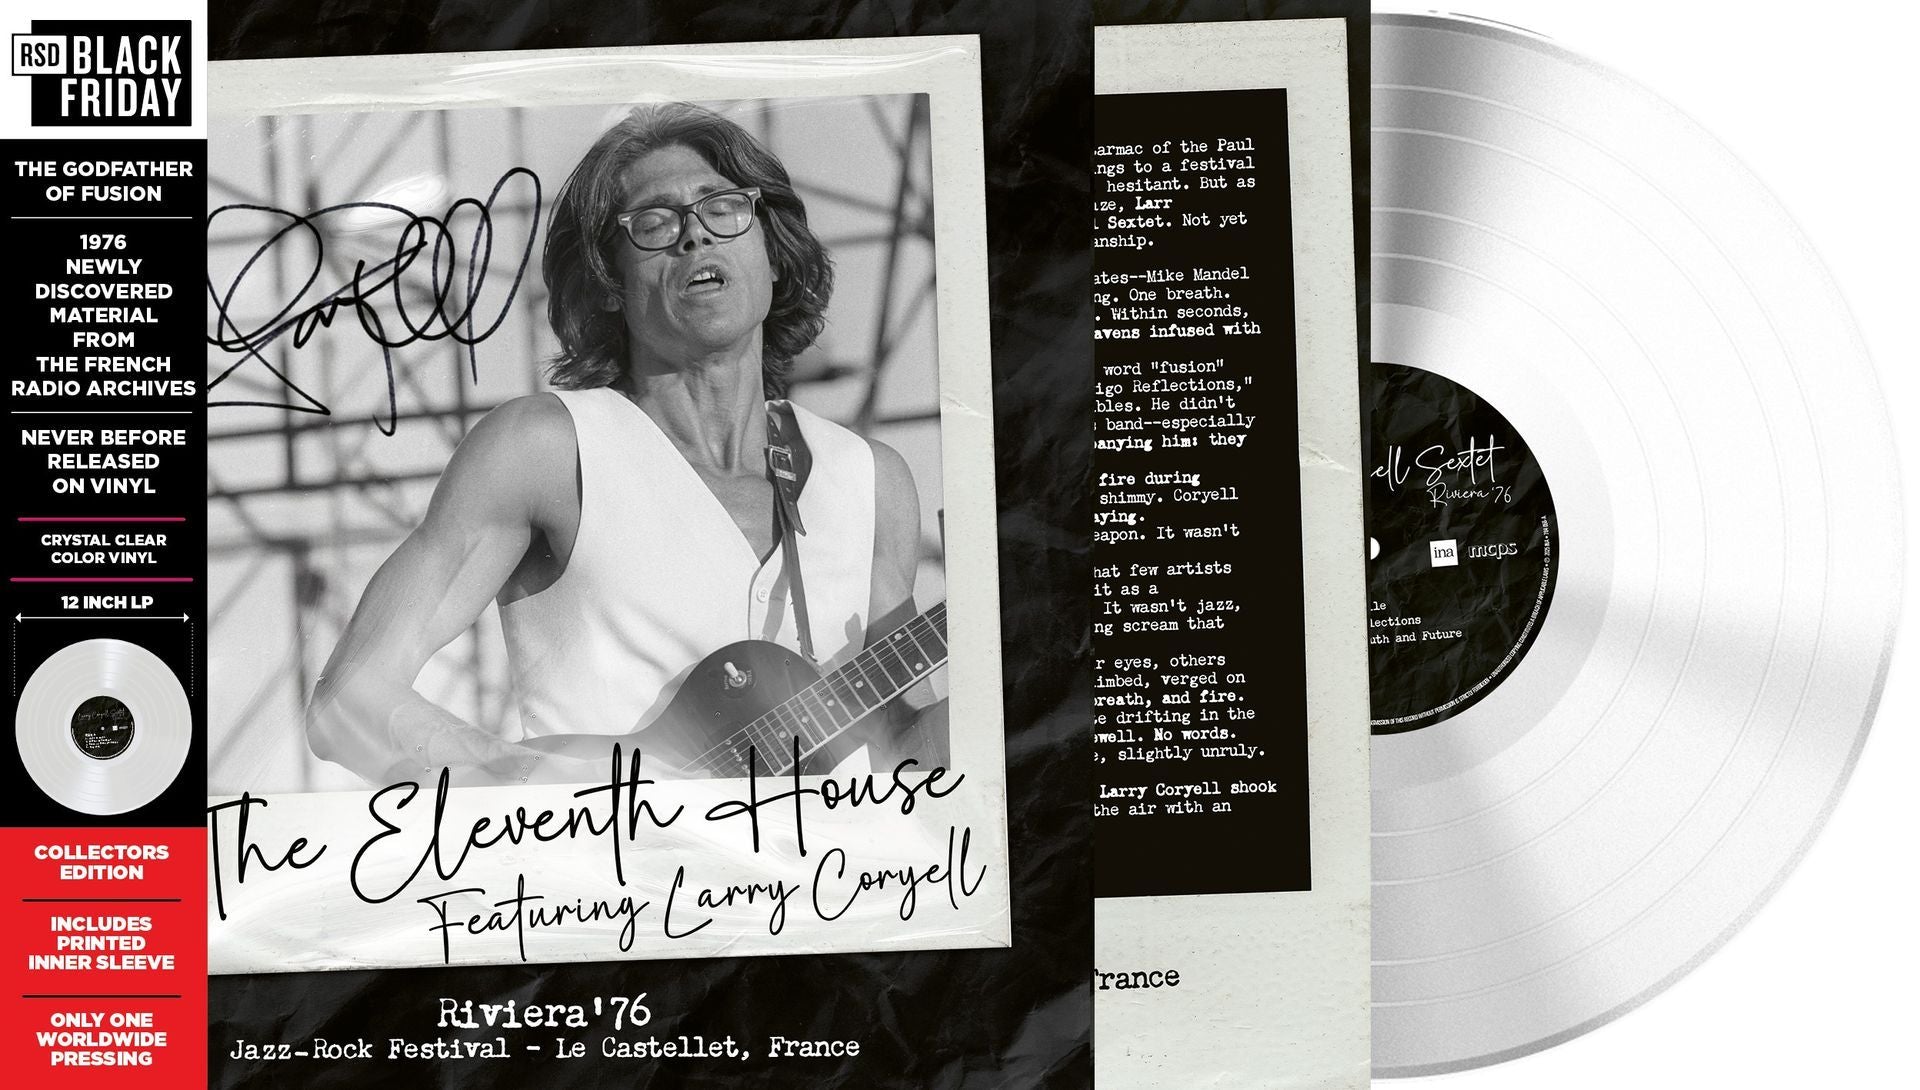 RSD BLACK
FRIDAY
THE GODFATHER
OF FUSION
1976
NEWLY
DISCOVERED
MATERIAL
FROM
THE FRENCH
RADIO ARCHIVES
NEVER BEFORE
RELEASED
ON VINYL
CRYSTAL CLEAR
COLOR VINYL
12 INCH LP
COLLECTORS
EDITION
INCLUDES
PRINTED
INNER SLEEVE
ONLY ONE
WORLDWIDE
PRESSING
The Eleventh House
Featuring Larry Coryell
Riviera'76
Jazz-Rock Festival - Le Castellet, France
armac of the Paul
ngs to a festival
hesitant. But as
ze, Larr
l Sextet. Not yet
anship.
ates--Mike Mandel
ng. One breath.
. Within seconds,
avens infused with
word "fusion"
igo Reflections,"
bles. He didn't
s band--especially
panying him: they
fire during
shimmy. Coryell
aying.
eapon. It wasn't
hat few artists
it as a
It wasn't jazz,
ng scream that
r eyes, others
limbed, verged on
breath, and fire.
e drifting in the
ewell. No words.
e, slightly unruly.
Larry Coryell shook
the air with an
France
ell Sextet
Riviera '76
ina mcps
le
lections
uth and Future